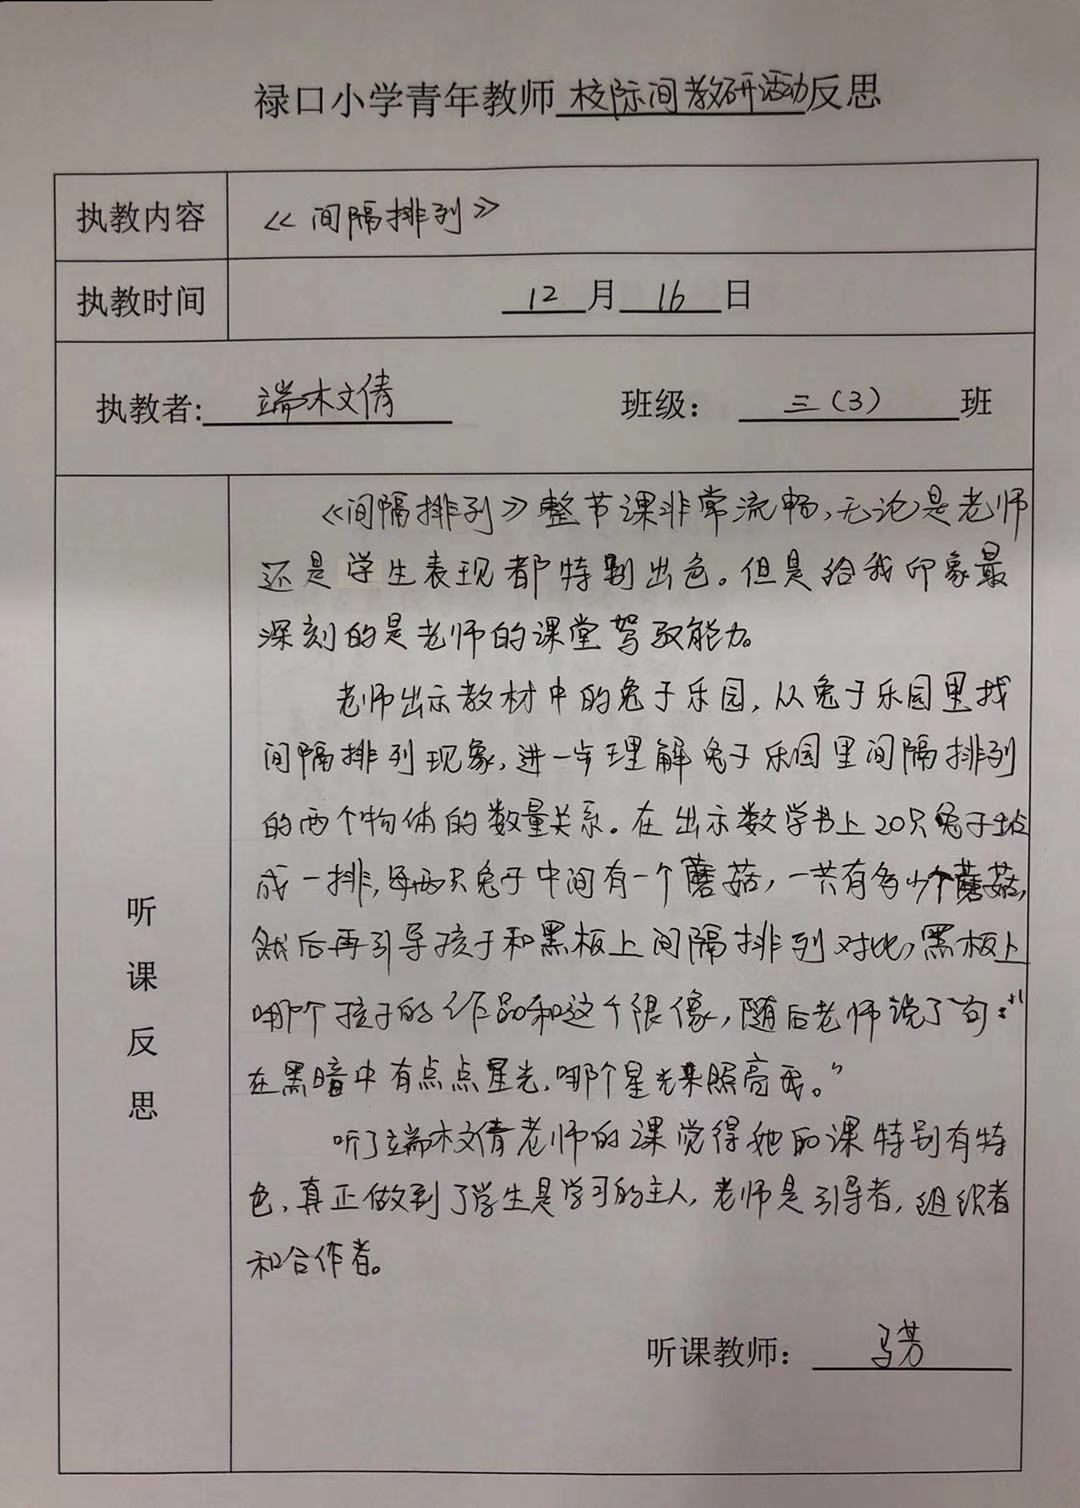 禄口小学青年教师校际间教研活动反思
执教内容 《间隔排列》
执教时间 12月16日
执教者:端木文倩 班级：三（3）班
听课反思
《间隔排列》整节课非常流畅,无论是老师
还是学生表现都特别出色。但是给我印象最
深刻的是老师的课堂驾驭能力。
老师出示教材中的兔子乐园,从兔子乐园里找
间隔排列现象,进一步理解兔子乐园里间隔排列
的两个物体的数量关系。在出示数学书上20只兔子站
成一排,每两只兔子中间有一个蘑菇,一共有多少个蘑菇,
然后再引导孩子和黑板上间隔排列对比,黑板上
哪个孩子的作品和这个很像,随后老师说了句:“
在黑暗中有点点星光,哪个星光来照亮我。”
听了端木文倩老师的课觉得她的课特别有特
色,真正做到了学生是学习的主人,老师是引导者,组织者
和合作者。
听课教师：马芳